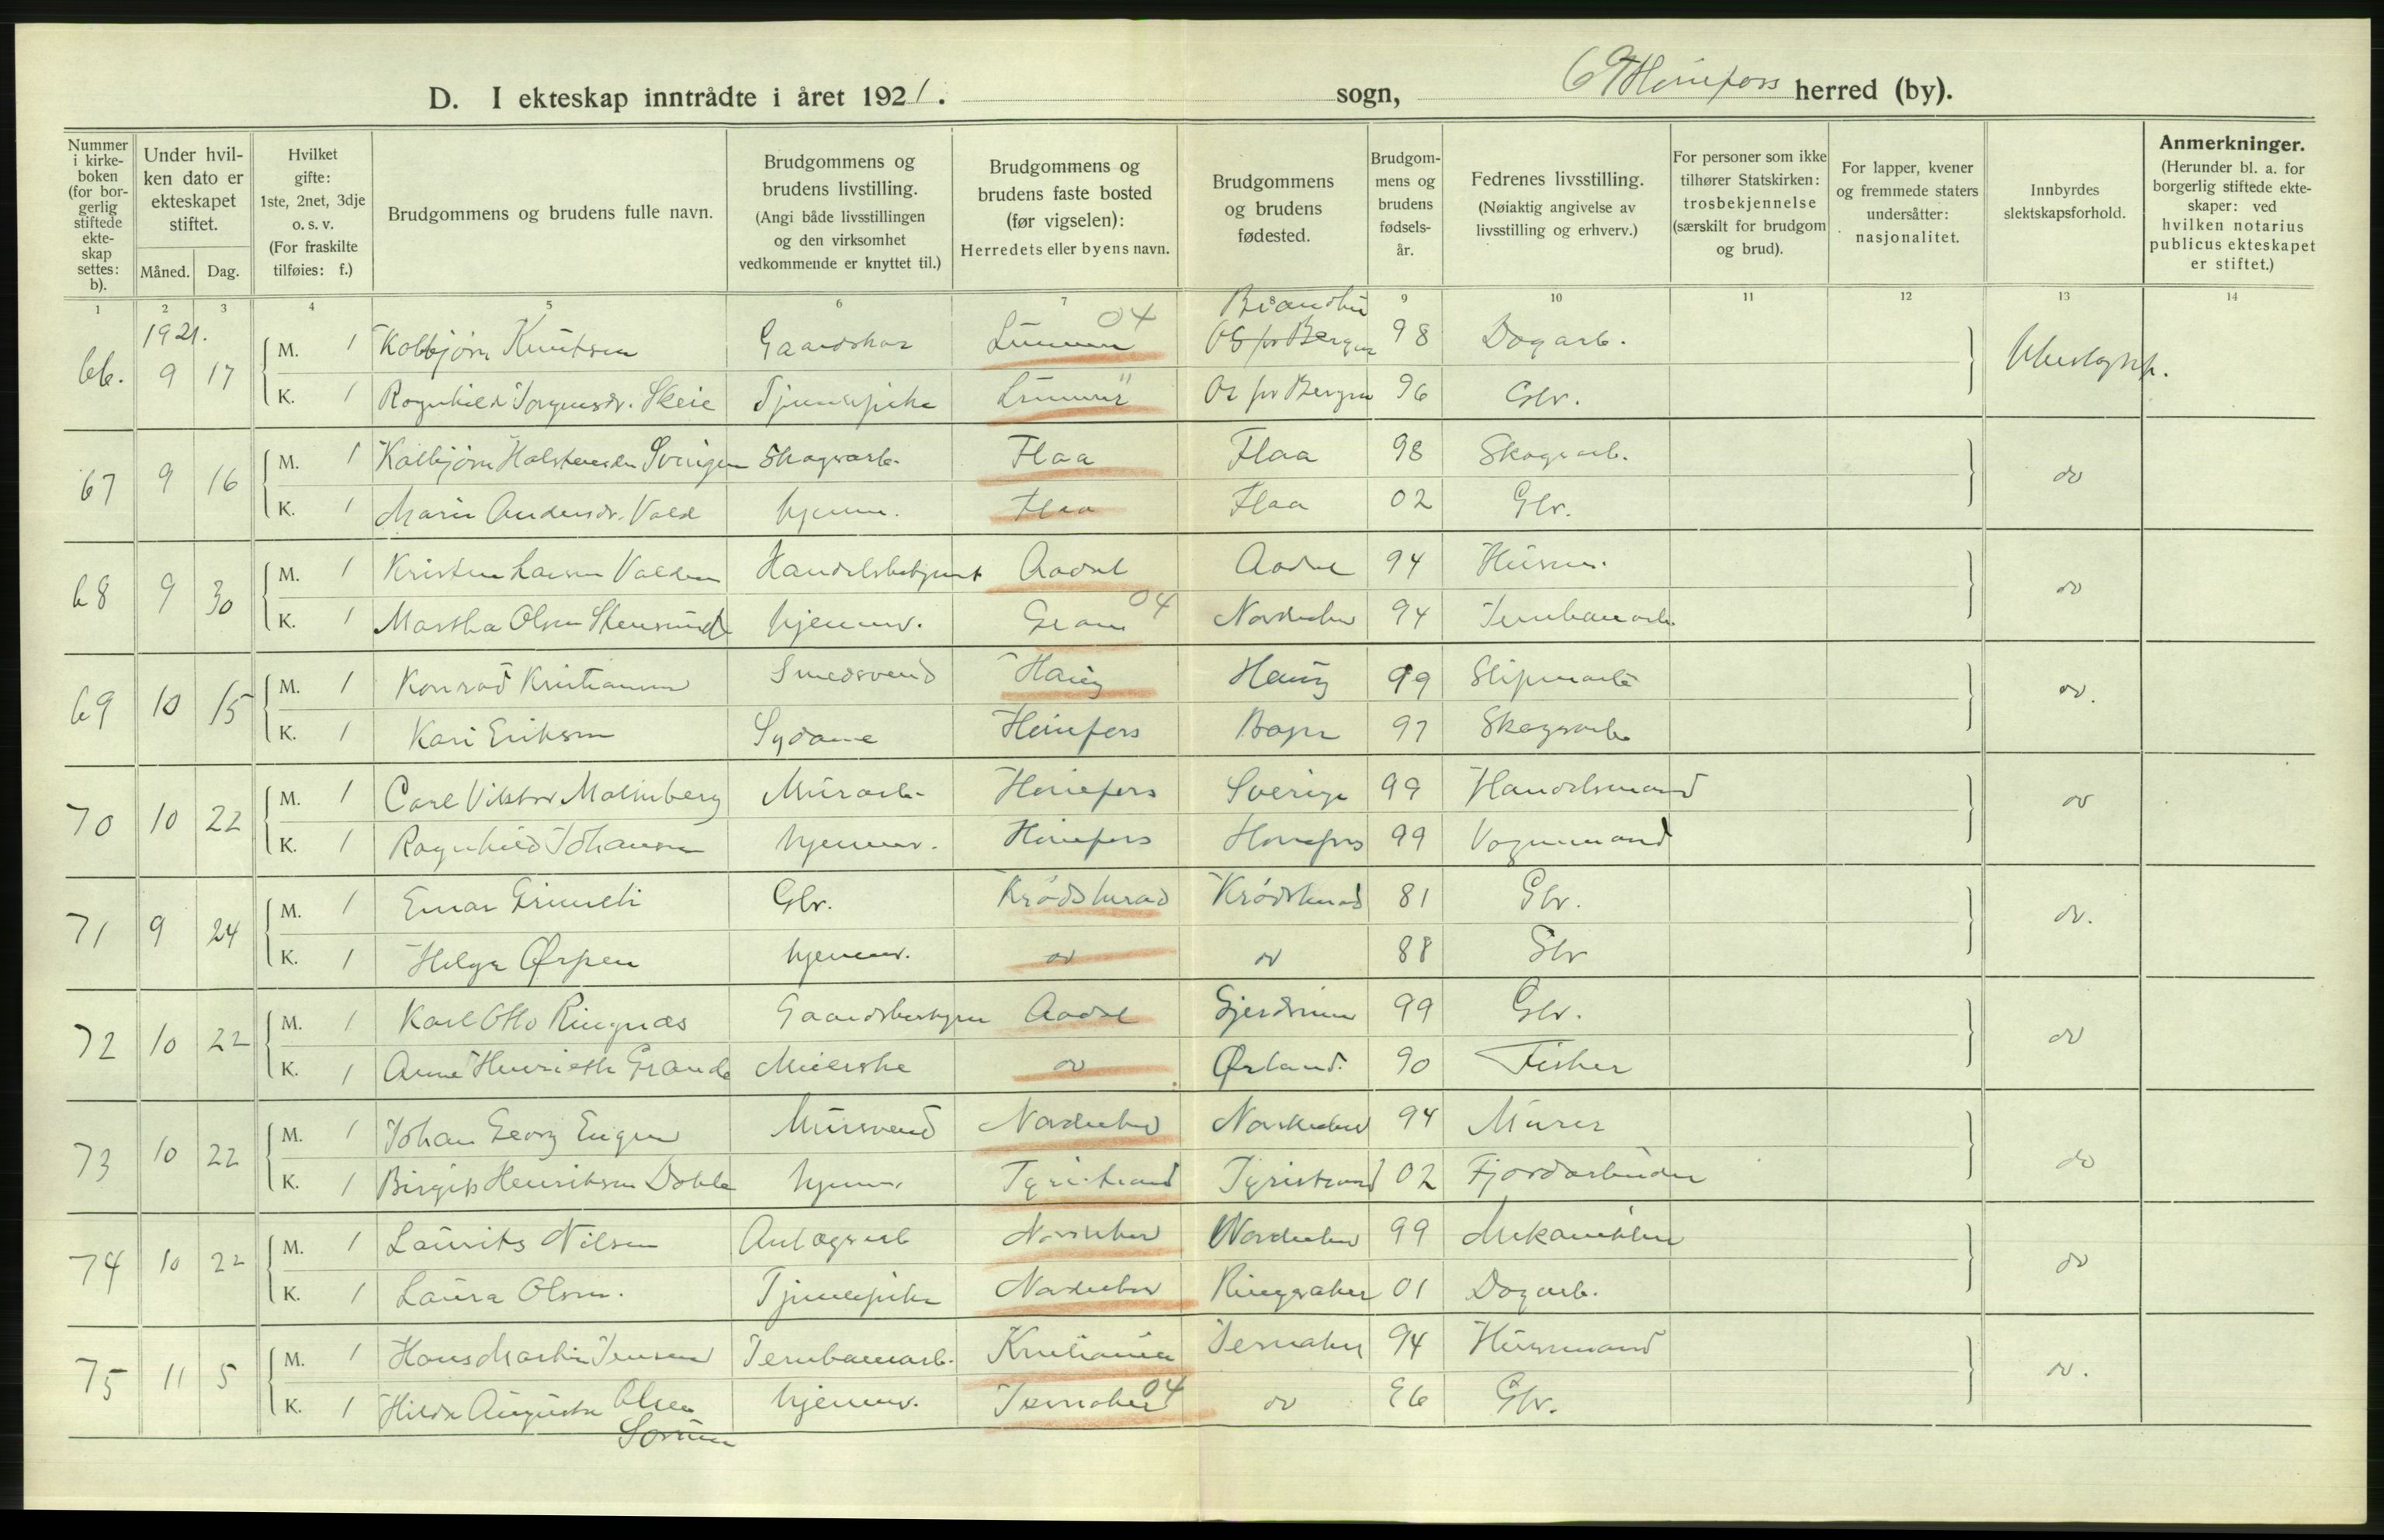 D. I ekteskap inntrådte i året 1921. sogn, Hönefoss herred (by).
Nummer i kirkeboken (for borgerlig stiftede ekteskap settes: b).
Under hvilken dato er ekteskapet stiftet.
Måned. Dag.
Hvilket gifte: 1ste, 2net, 3dje o. s. v. (For fraskilte tilføies: f.)
Brudgommens og brudens fulle navn.
Brudgommens og brudens livstilling. (Angi både livsstillingen og den virksomhet vedkommende er knyttet til.)
Brudgommens og brudens faste bosted (før vigselen): Herredets eller byens navn.
Brudgommens og brudens fødested.
Brudgommens og brudens fødselsår.
Fedrenes livsstilling. (Nøiaktig angivelse av livsstilling og erhverv.)
For personer som ikke tilhører Statskirken: trosbekjennelse (særskilt for brudgom og brud).
For lapper, kvener og fremmede staters undersåtter: nasjonalitet.
Innbyrdes slektskapsforhold.
Anmerkninger. (Herunder bl. a. for borgerlig stiftede ekteskaper: ved hvilken notarius publicus ekteskapet er stiftet.)
1 2 3 4 5 6 7 8 9 10 11 12 13 14
1921. 04 Brandbu
66. 9 17 M. 1 Kolbjörn Knutsen Gaardskar Lunner Os for Bergen 98 Dagarb. Ubeslægtet.
K. 1 Ragnhild Torgersdr. Skeie Tjenestepike Lunner " Os for Bergen 96 Gbr.
67 9 16 M. 1 Kolbjörn Halstensen Sevrigen Skogsarb. Flaa Flaa 98 Skogsarb. do
K. 1 Marie Andersdr. Vold hjemm. Flaa Flaa 02 Gbr.
68 9 30 M. 1 Kristen Larsen Valdren Handelsbetjent Aadal Aadal 94 Husm. do
K. 1 Martha Olsen Stensrud hjemmev. Gran 04 Norderhov 94 Jernbanearb.
69 10 15 M. 1 Konrad Kristiansen Smedsvend Haug Haug 99 Slipearb do.
K. 1 Kari Eriksen Sydame Hönefoss Bagn 97 Skogsarb.
70 10 22 M. 1 Carl Viktor Malmberg Murarb. Hönefoss Sverige 99 Handelsmand do
K. 1 Ragnhild Johansen hjemmev. Hönefoss Hönefoss 99 Vognmand
71 9 24 M. 1 Einar Grimeli Gbr. Krødsherad Krødsherad 81 Gbr. do.
K. 1 Helga Ørpen hjemmev. do do 88 Gbr
72 10 22 M. 1 Karl Otto Ringnæs Gaardsbestyrer Aadal Gjerdrum 99 Gbr. do
K. 1 Anne Henriette Grande Meierske do Ørland. 90 Fisker
73 10 22 M. 1 Johan Georg Engen Mursvend Norderhov Norderhov 94 Murer do
K. 1 Birgit Henriksen Dohle hjemm. Tyristrand Tyristrand 02 Fjordarbeider
74 10 22 M. 1 Laurits Nilsen Anlægsarb Norderhov Norderhov 99 Mekaniker do
K. 1 Laura Olsen. Tjenestepike Norderhov Ringsaker 01 Dagarb.
75 11 5 M. 1 Hans Martin Jensen Jernbanearb. Kristiania Jevnaker 94 Husmand do.
K. 1 Hilda Augusta Olsen Jevnaker 04 hjemmev. do 96 Gbr.
Sorum